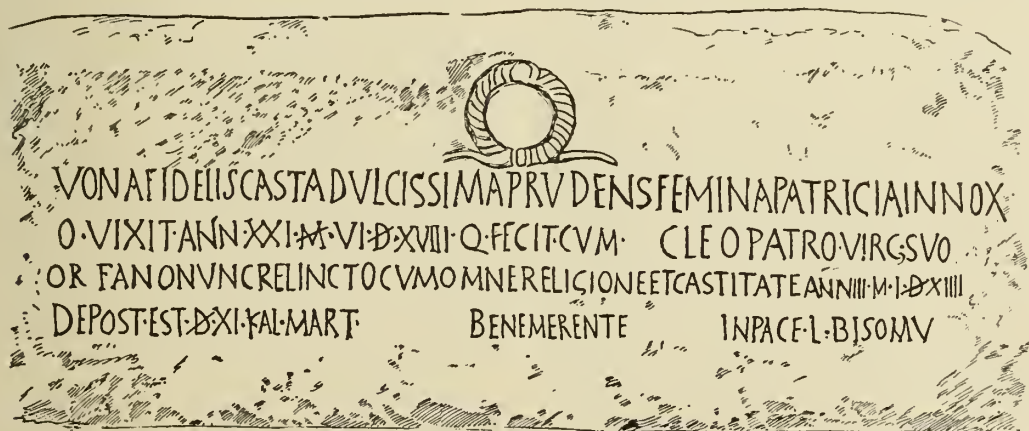 VONAFIDELISCASTADVLCISSIMAPRVDENSFEMINAPATRICIAINNOX
O·VIXIT·ANN·XXI·M·VI·D·XVIII·Q·FECIT·CVM· CLEOPATRO·VIRG·SVO
OR FANONVNCRELINCTOCVMOMNERELIGIONEETCASTITATEANNIIII·M·I·DXIIII
DEPOST·EST·D·XI·KAL·MART· BENEMERENTE INPACE·L·BISOMV